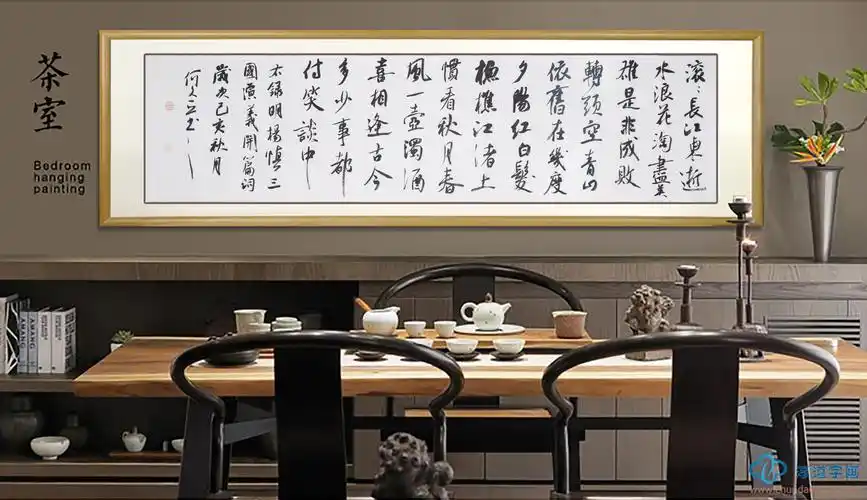 茶室
Bedroom
hanging
painting
滚〻長江東逝
水浪花淘盡英
雄是非成敗
轉頭空青山
依舊在幾度
夕陽紅白髮
漁樵江渚上
慣看秋月春
風一壺濁酒
喜相逢古今
多少事都
付笑談中
右録明楊慎三
國演義開篇詞
歲次己亥秋月
ARMANI